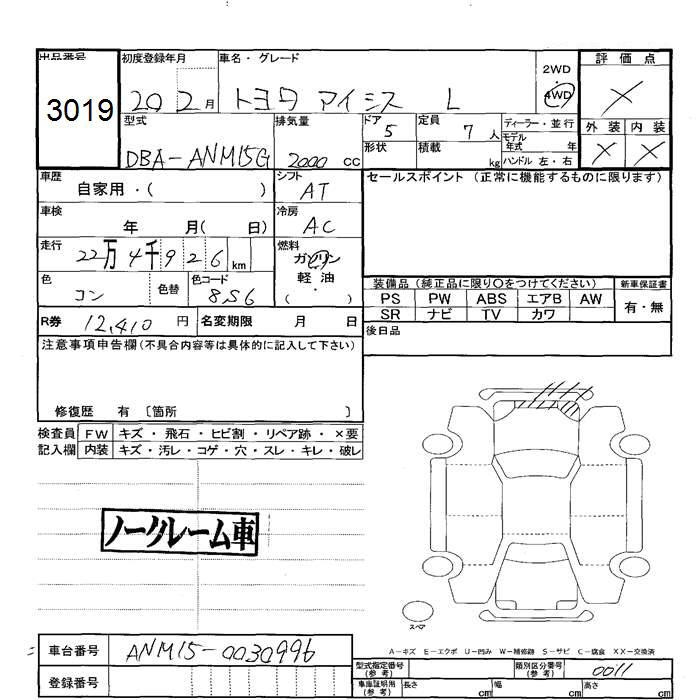 出品番号
3019
初度登録年月
20 2月
車名・グレード
トヨタ アイシス L
2WD
4WD
評価点
×
外装 内装
× ×
型式
DBA-ANM15G
排気量
2000 cc
ドア
5
定員
7 人
形状
積載 kg
ディーラー・並行
モデル
年式 年
ハンドル 左・右
車歴
自家用・( )
シフト
AT
セールスポイント (正常に機能するものに限ります)
車検
年 月( 日)
冷房
AC
走行
22万4千926 km
燃料
ガソリン
軽油
・
( )
色
コン
色替
色コード
8S6
装備品 (純正品に限り○をつけてください)
新車保証書
PS PW ABS エアB AW
SR ナビ TV カワ
有・無
R券 12,410 円
名変期限 月 日
後日品
注意事項申告欄(不具合内容等は具体的に記入して下さい)
修復歴 有 〔箇所 〕
検査員 FW キズ・飛石・ヒビ割・リペア跡・×要
記入欄 内装 キズ・汚レ・コゲ・穴・スレ・キレ・破レ
ノークレーム車
スペア
A-キズ E-エクボ U-凹み W-補修跡 S-サビ C-腐食 XX-交換済
車台番号 ANM15-0030996
登録番号
型式指定番号
(参考)
類別区分番号
(参考)
0011
車庫証明用
(参考)
長さ cm 幅 cm 高さ cm